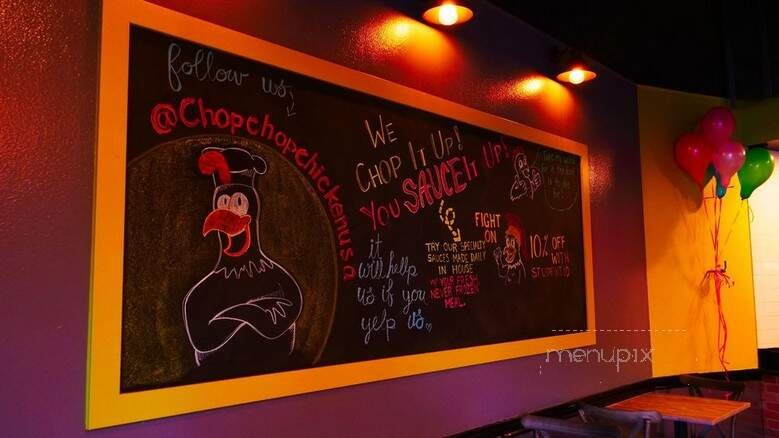 follow us
@Chopchopchickenusa
WE
CHOP IT UP!
YOU SAUCE IT UP!
it
will hellp
us if you
yelp us
TRY OUR SPECIALTY
SAUCES MADE DAILY
IN HOUSE
W/ YOUR FRESH
NEVER FROZEN
MEAL
FIGHT
ON
10% OFF
WITH
STUDENT ID
menupix